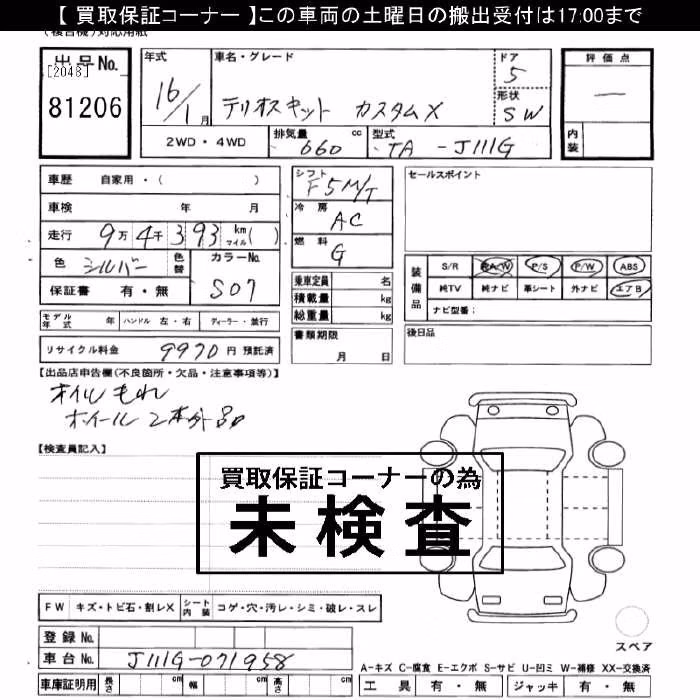 【 買取保証コーナー 】この車両の土曜日の搬出受付は17:00まで
(複合機)対応用紙
出品No.
[2048]
81206
年式
16/1月
車名・グレード
テリオスキット カスタムX
ドア
5
形状
SW
評価点
—
内装
2WD・4WD
排気量
660 cc
型式
TA - J111G
車歴 自家用・( )
車検 年 月
走行 9万 4千 393 km マイル( )
色 シルバー 色替
カラーNo.
S07
保証書 有・無
シフト
F5M/T
冷房
AC
燃料
G
乗車定員 名
積載量 kg
総重量 kg
セールスポイント
装備品
S/R 純A/W P/S P/W ABS
純TV 純ナビ 革シート 外ナビ エアB
ナビ型番:
モデル年式 年 ハンドル 左・右 ディーラー・並行
書類期限
月 日
後日品
リサイクル料金 9970 円 預託済
【出品店申告欄(不良箇所・欠品・注意事項等)】
オイルもれ
ホイール2本外品
【検査員記入】
買取保証コーナーの為
未検査
FW キズ・トビ石・割レX シート内装 コゲ・穴・汚レ・シミ・破レ・スレ
登録No.
車台No. J111G-071958
スペア
A-キズ C-腐食 E-エクボ S-サビ U-凹ミ W-補修 XX-交換済
車庫証明用 長さ cm 幅 cm 高さ cm
工具 有・無 ジャッキ 有・無